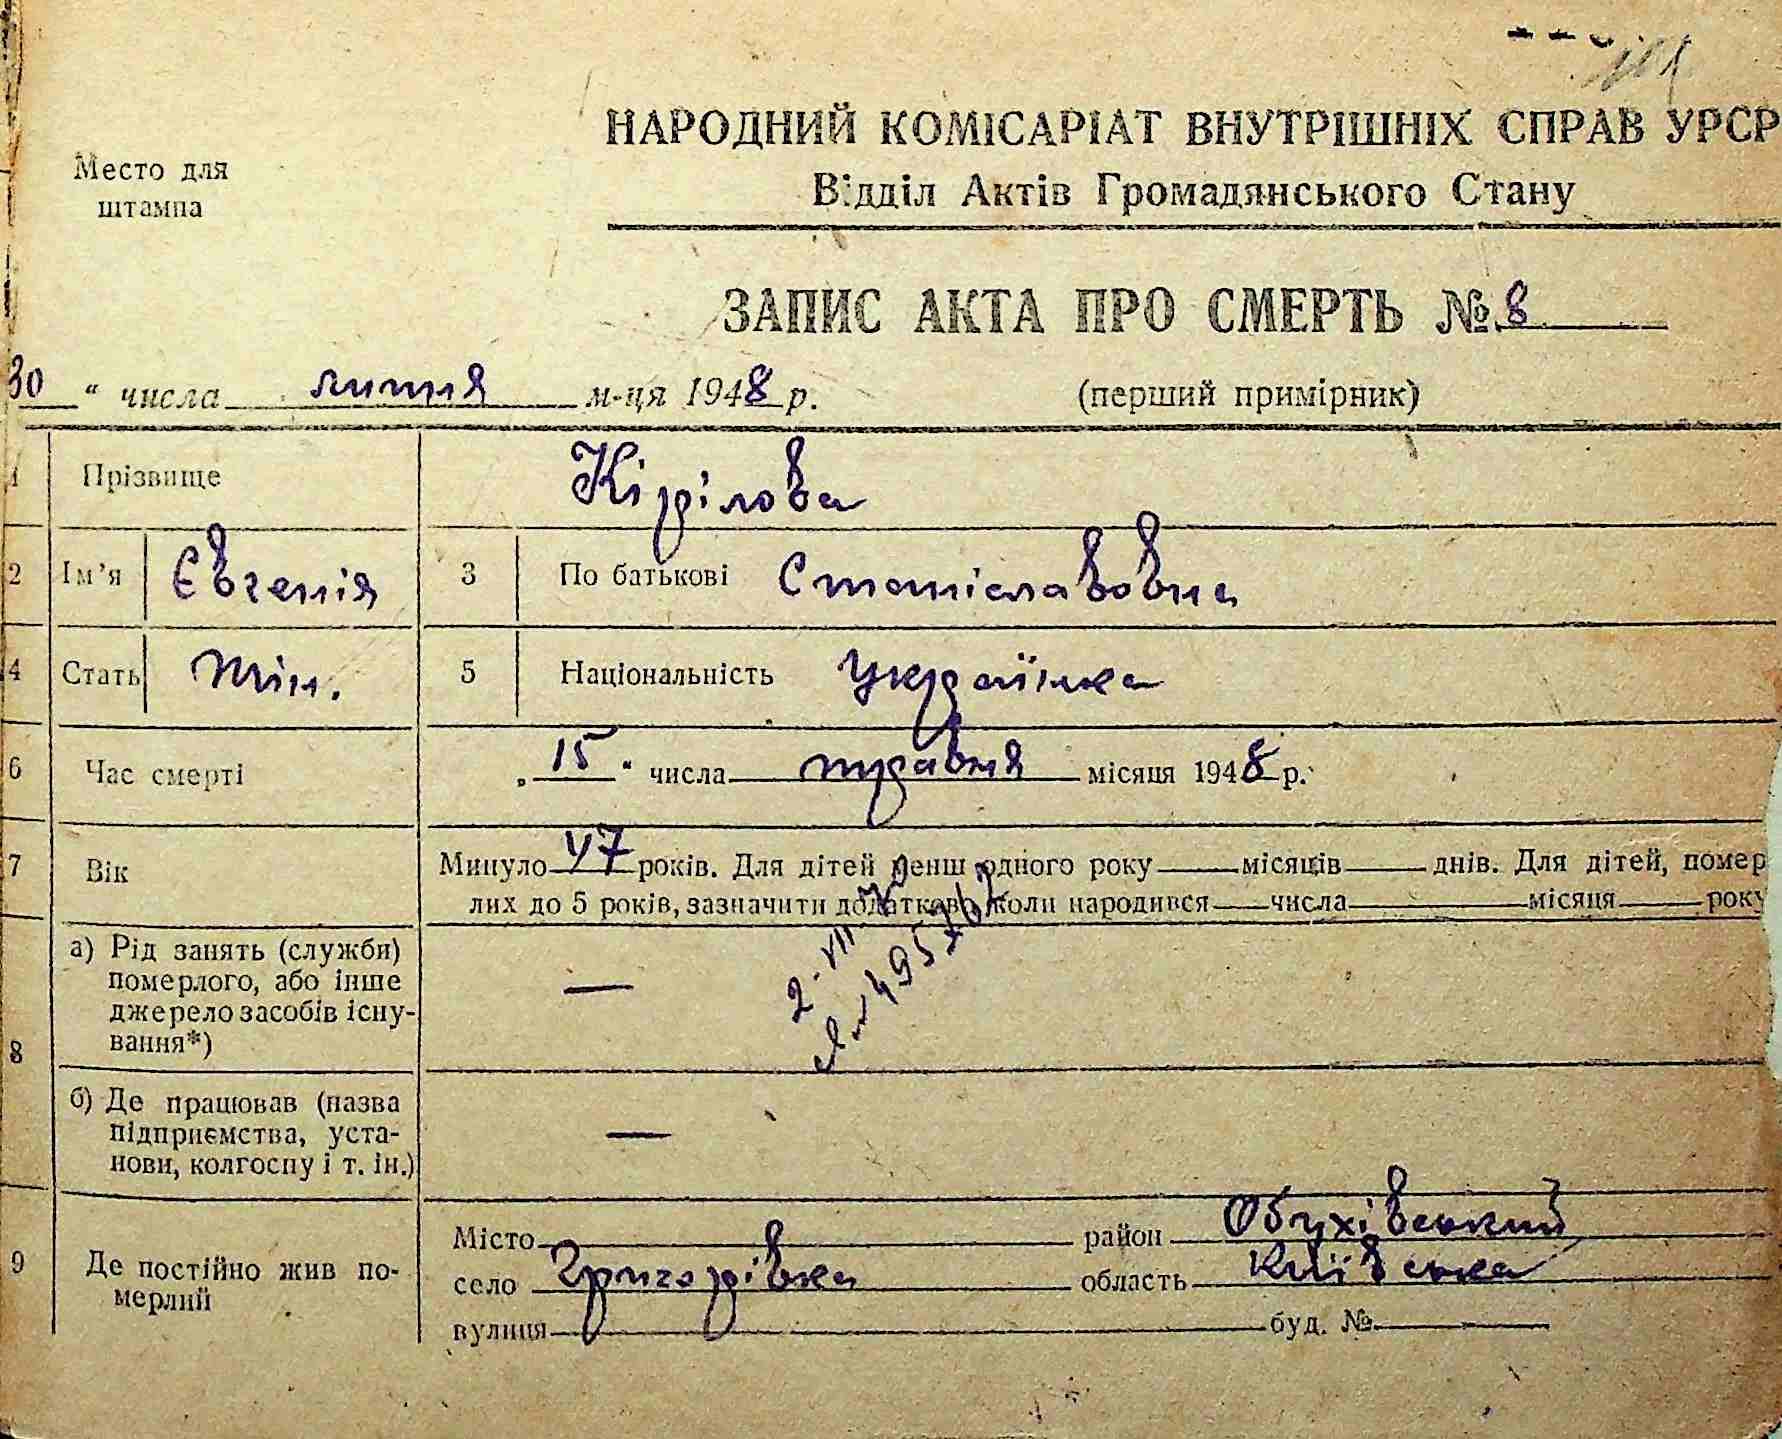 НАРОДНИЙ КОМІСАРІАТ ВНУТРІШНІХ СПРАВ УРСР
Место для штампа
Відділ Актів Громадянського Стану
ЗАПИС АКТА ПРО СМЕРТЬ № 8
30 " числа липня м-ця 1948 р. (перший примірник)
1 Прізвище Кірілова
2 Ім'я Євгенія 3 По батькові Станіславовна
4 Стать жін. 5 Національність Українка
6 Час смерті „ 15 " числа травня місяця 1948 р.
7 Вік Минуло 47 років. Для дітей менш одного року місяців днів. Для дітей, помер
лих до 5 років, зазначити додатково, коли народився числа місяця року
8 а) Рід занять (служби)
померлого, або інше
джерело засобів існу-
вання*) —
2.VII
б) Де працював (назва
підприємства, уста-
нови, колгоспу і т. ін.) —
9 Де постійно жив по-
мерлий
Місто район Обухівський
село Григорівка область Київська
вулиця буд. №